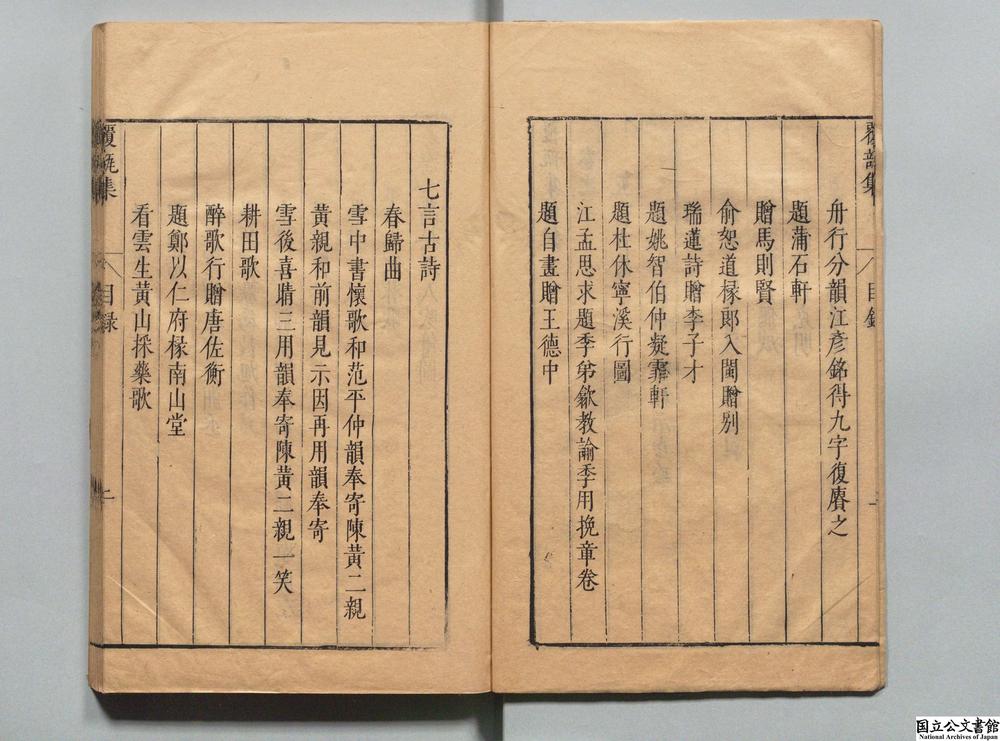 覆瓿集
目錄
一
舟行分韻江彥銘得九字復賡之
題蒲石軒
贈馬則賢
俞恕道椽郎入閩贈别
瑞蓮詩贈李子才
題姚智伯仲凝霏軒
題杜休寧溪行圖
江孟思求題季弟歙教諭季用挽章卷
題自畫贈王德中
七言古詩
春歸曲
雪中書懷歌和范平仲韻奉寄陳黃二親
黃親和前韻見示因再用韻奉寄
雪後喜晴三用韻奉寄陳黃二親一笑
耕田歌
醉歌行贈唐佐衡
題鄭以仁府椽南山堂
看雲生黃山採藥歌
覆瓿集
目錄
二
国立公文書館
National Archives of Japan